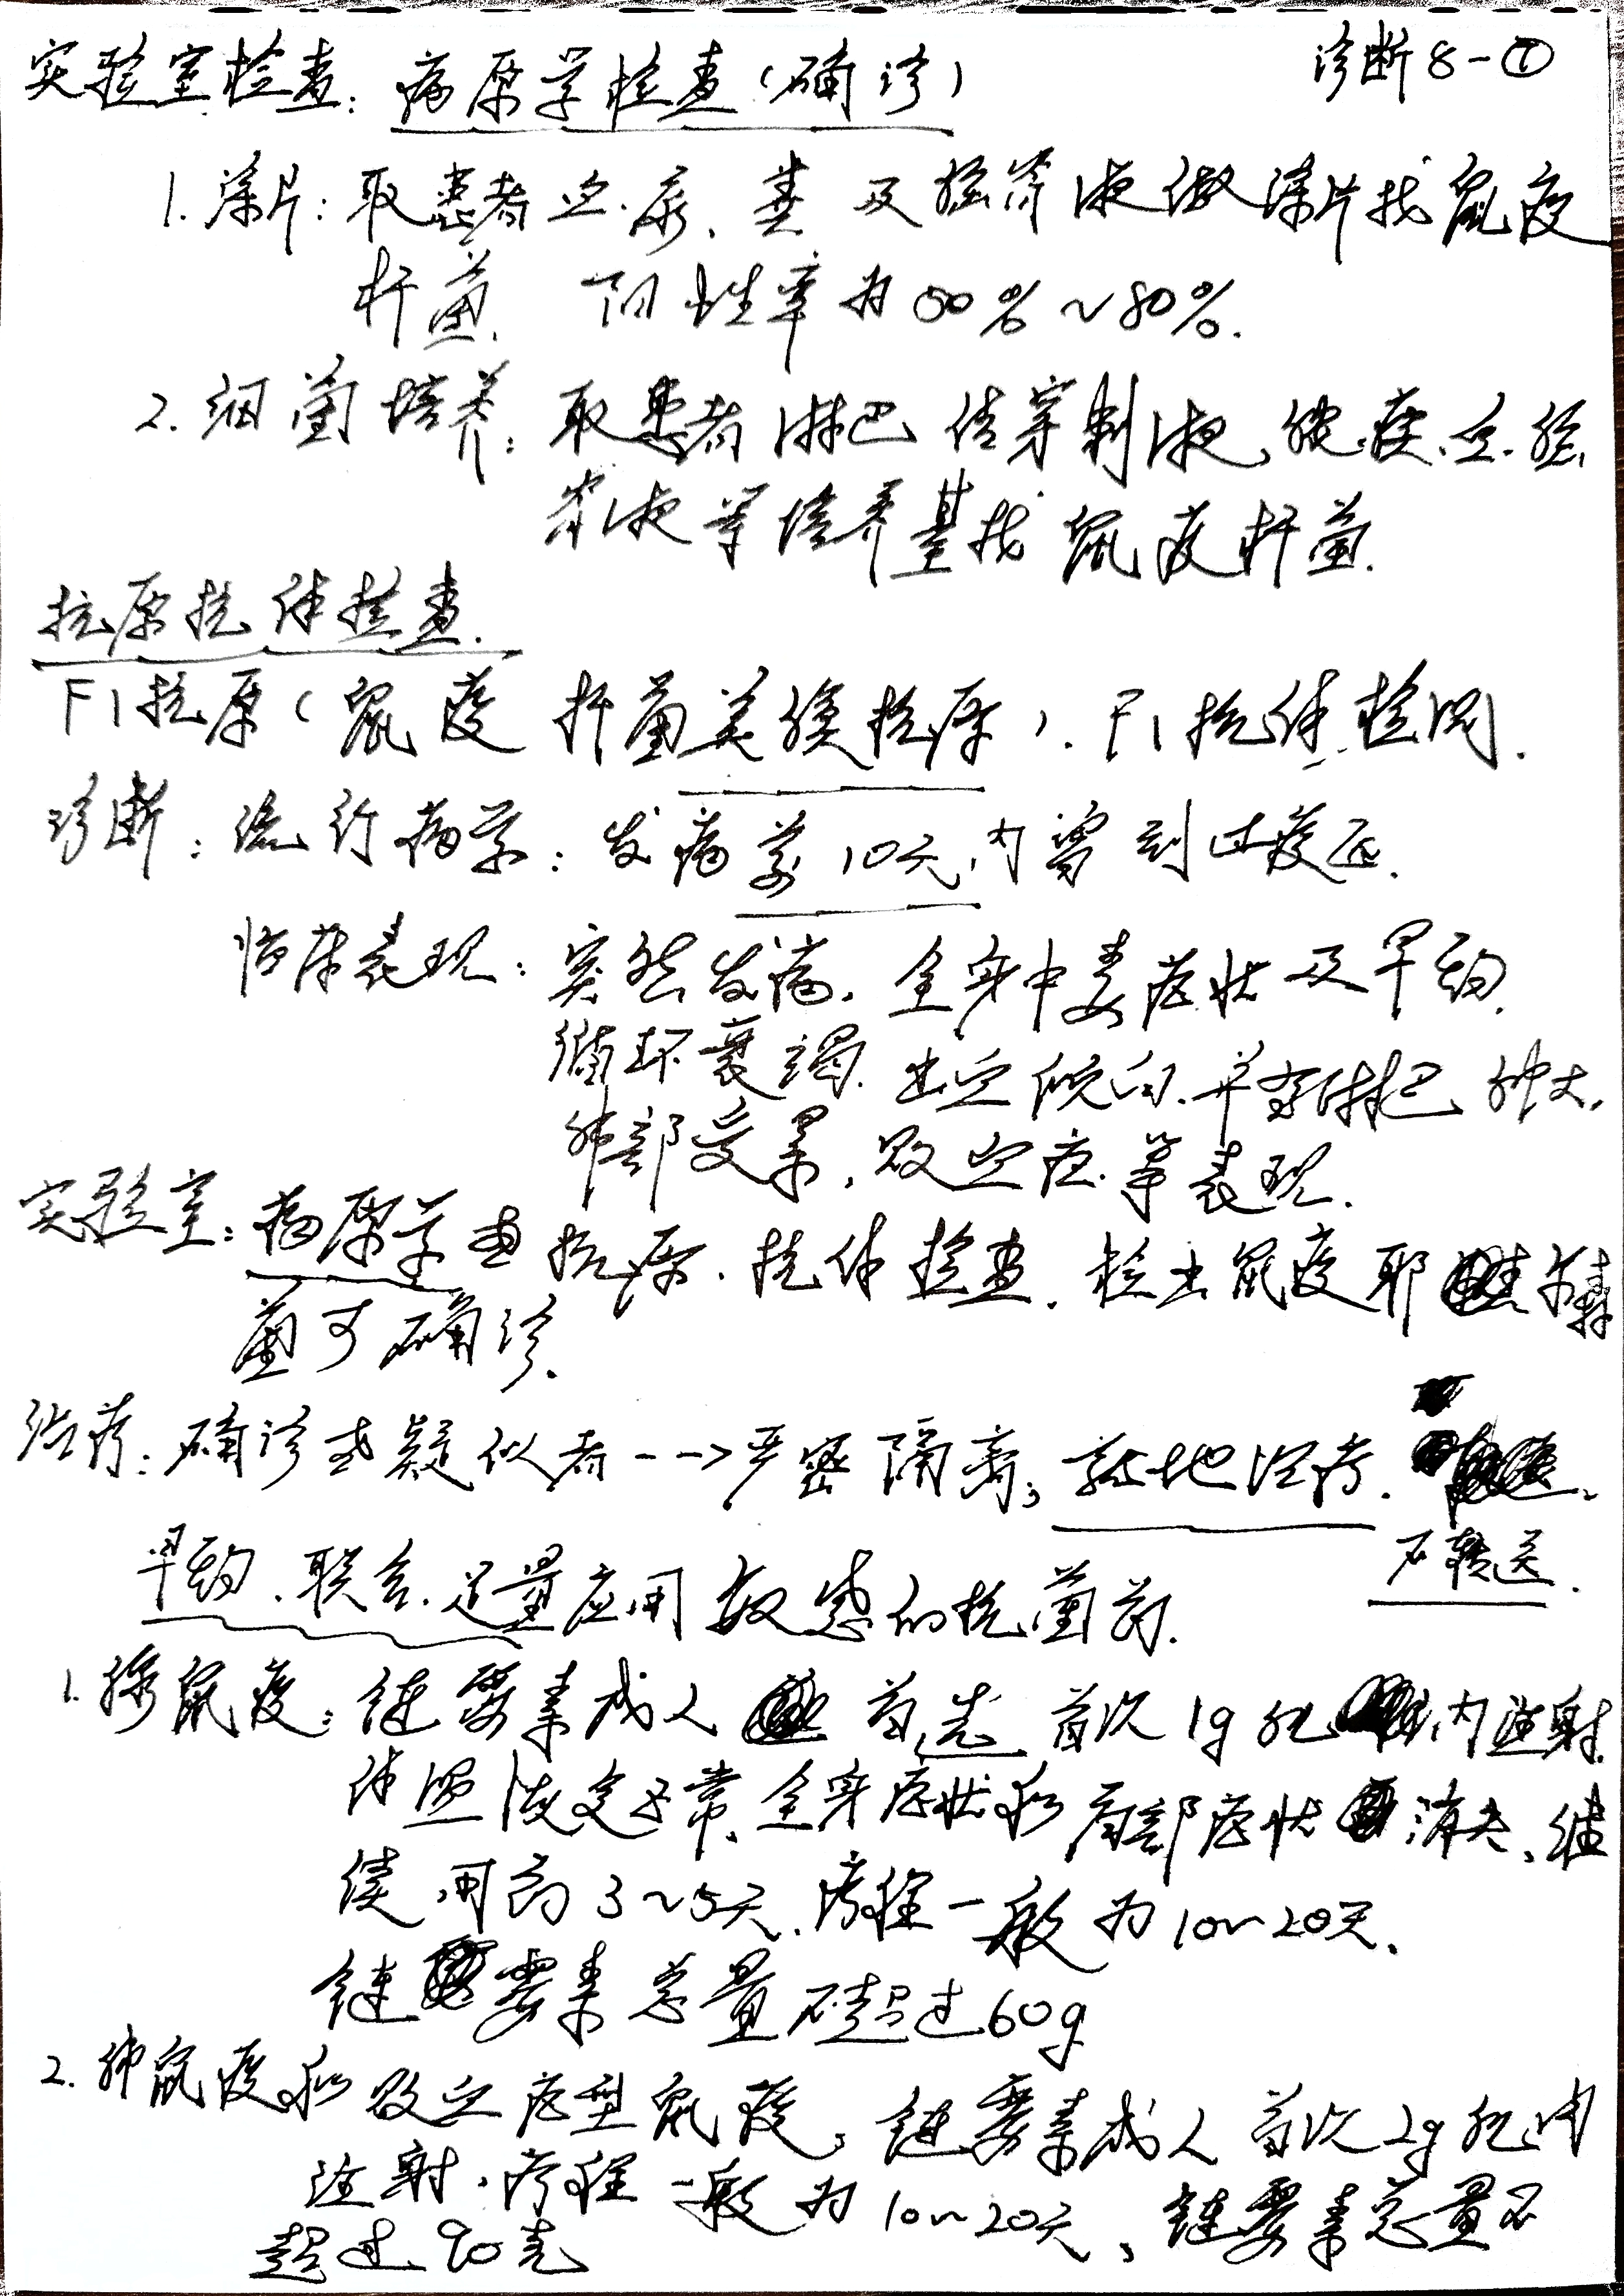 诊断8-①
实验室检查：病原学检查（确诊）
1.涂片：取患者血.尿、粪及脑脊液做涂片找鼠疫
杆菌.阳性率为50%~80%.
2.细菌培养：取患者淋巴结穿刺液、脓、痰、血.脑
脊液等培养基找鼠疫杆菌.
抗原抗体检查.
F1抗原（鼠疫杆菌荚膜抗原）.F1抗体检测.
诊断：流行病学：发病前10天内曾到过疫区.
临床表现：突然发病.全身中毒症状及早期.
循环衰竭.出血倾向.并有淋巴肿大.
肺部受累，败血症.等表现.
实验室：病原学查抗原.抗体检查.检出鼠疫耶尔森
菌可确诊.
治疗：确诊或疑似者-->严密隔离；就地治疗.
不转送.
早期、联合.足量应用敏感的抗菌药.
1.腺鼠疫：链霉素成人首选首次1g肌内注射.
体温恢复正常、全身症状和局部症状消失、继
续用药3~5天.疗程一般为10~20天.
链霉素总量不超过60g
2.肺鼠疫和败血症型鼠疫，链霉素成人首次2g肌内
注射.疗程一般为10~20天、链霉素总量不
超过90克